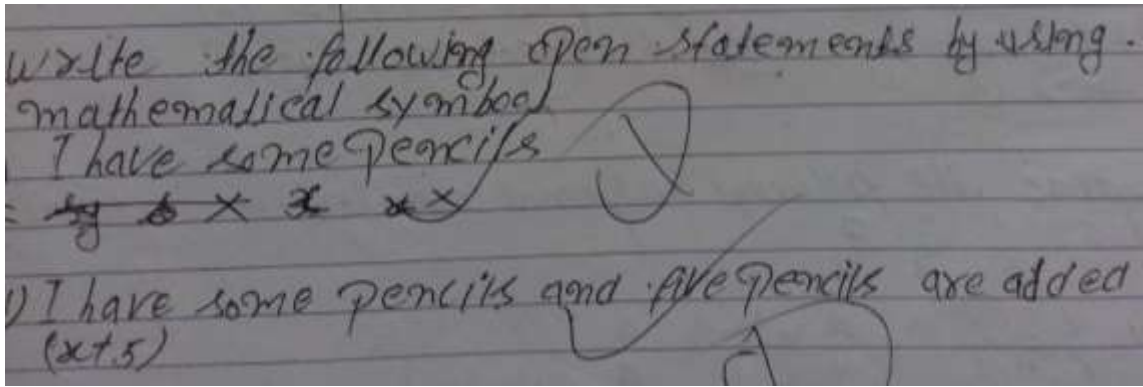 write the following open statements by using.
mathematical symbol
I have some pencils
x
) I have some pencils and five pencils are added
(x+5)